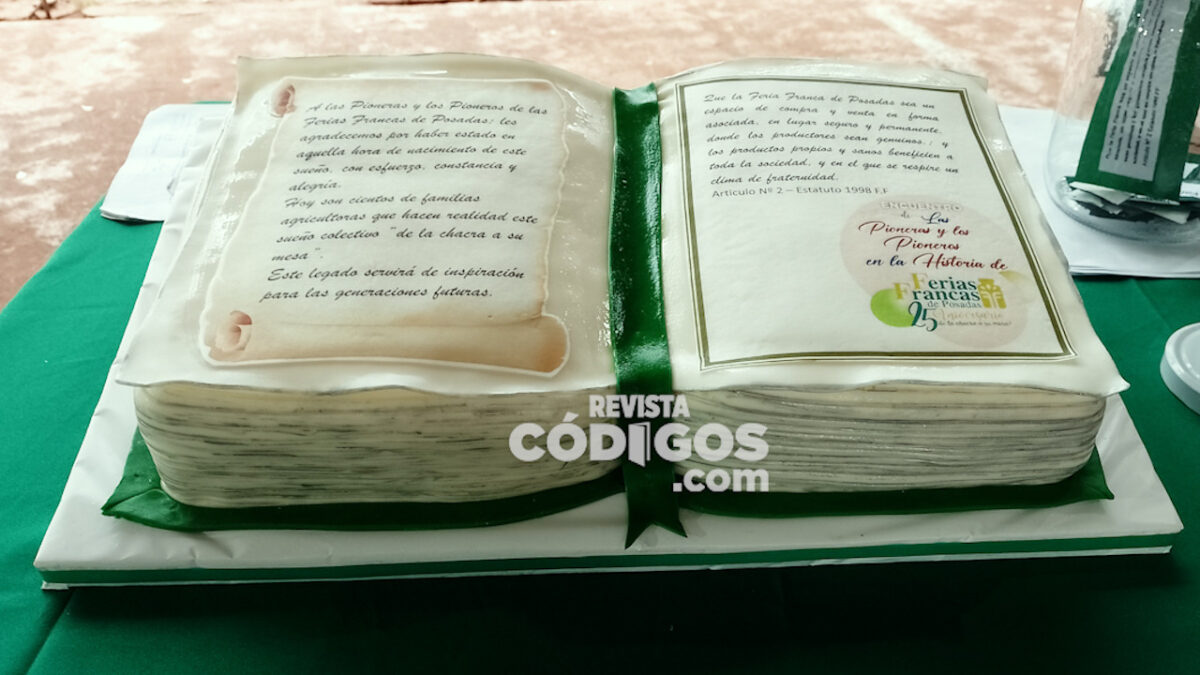 A las Pioneras y los Pioneros de las
Ferias Francas de Posadas: les
agradecemos por haber estado en
aquella hora de nacimiento de este
sueño, con esfuerzo, constancia y
alegría.
Hoy son cientos de familias
agricultoras que hacen realidad este
sueño colectivo "de la chacra a su
mesa".
Este legado servirá de inspiración
para las generaciones futuras.
Que la Feria Franca de Posadas sea un
espacio de compra y venta en forma
asociada, en lugar seguro y permanente,
donde los productores sean genuinos,; y
los productos propios y sanos beneficien a
toda la sociedad, y en el que se respire un
clima de fraternidad.
Artículo Nº 2 – Estatuto 1998 F.F
ENCUENTRO
de Las
Pioneras y los
Pioneros
en la Historia de
Ferias
Francas
de Posadas
25 Aniversario
de la chacra a su mesa!
REVISTA
CÓDIGOS
.com